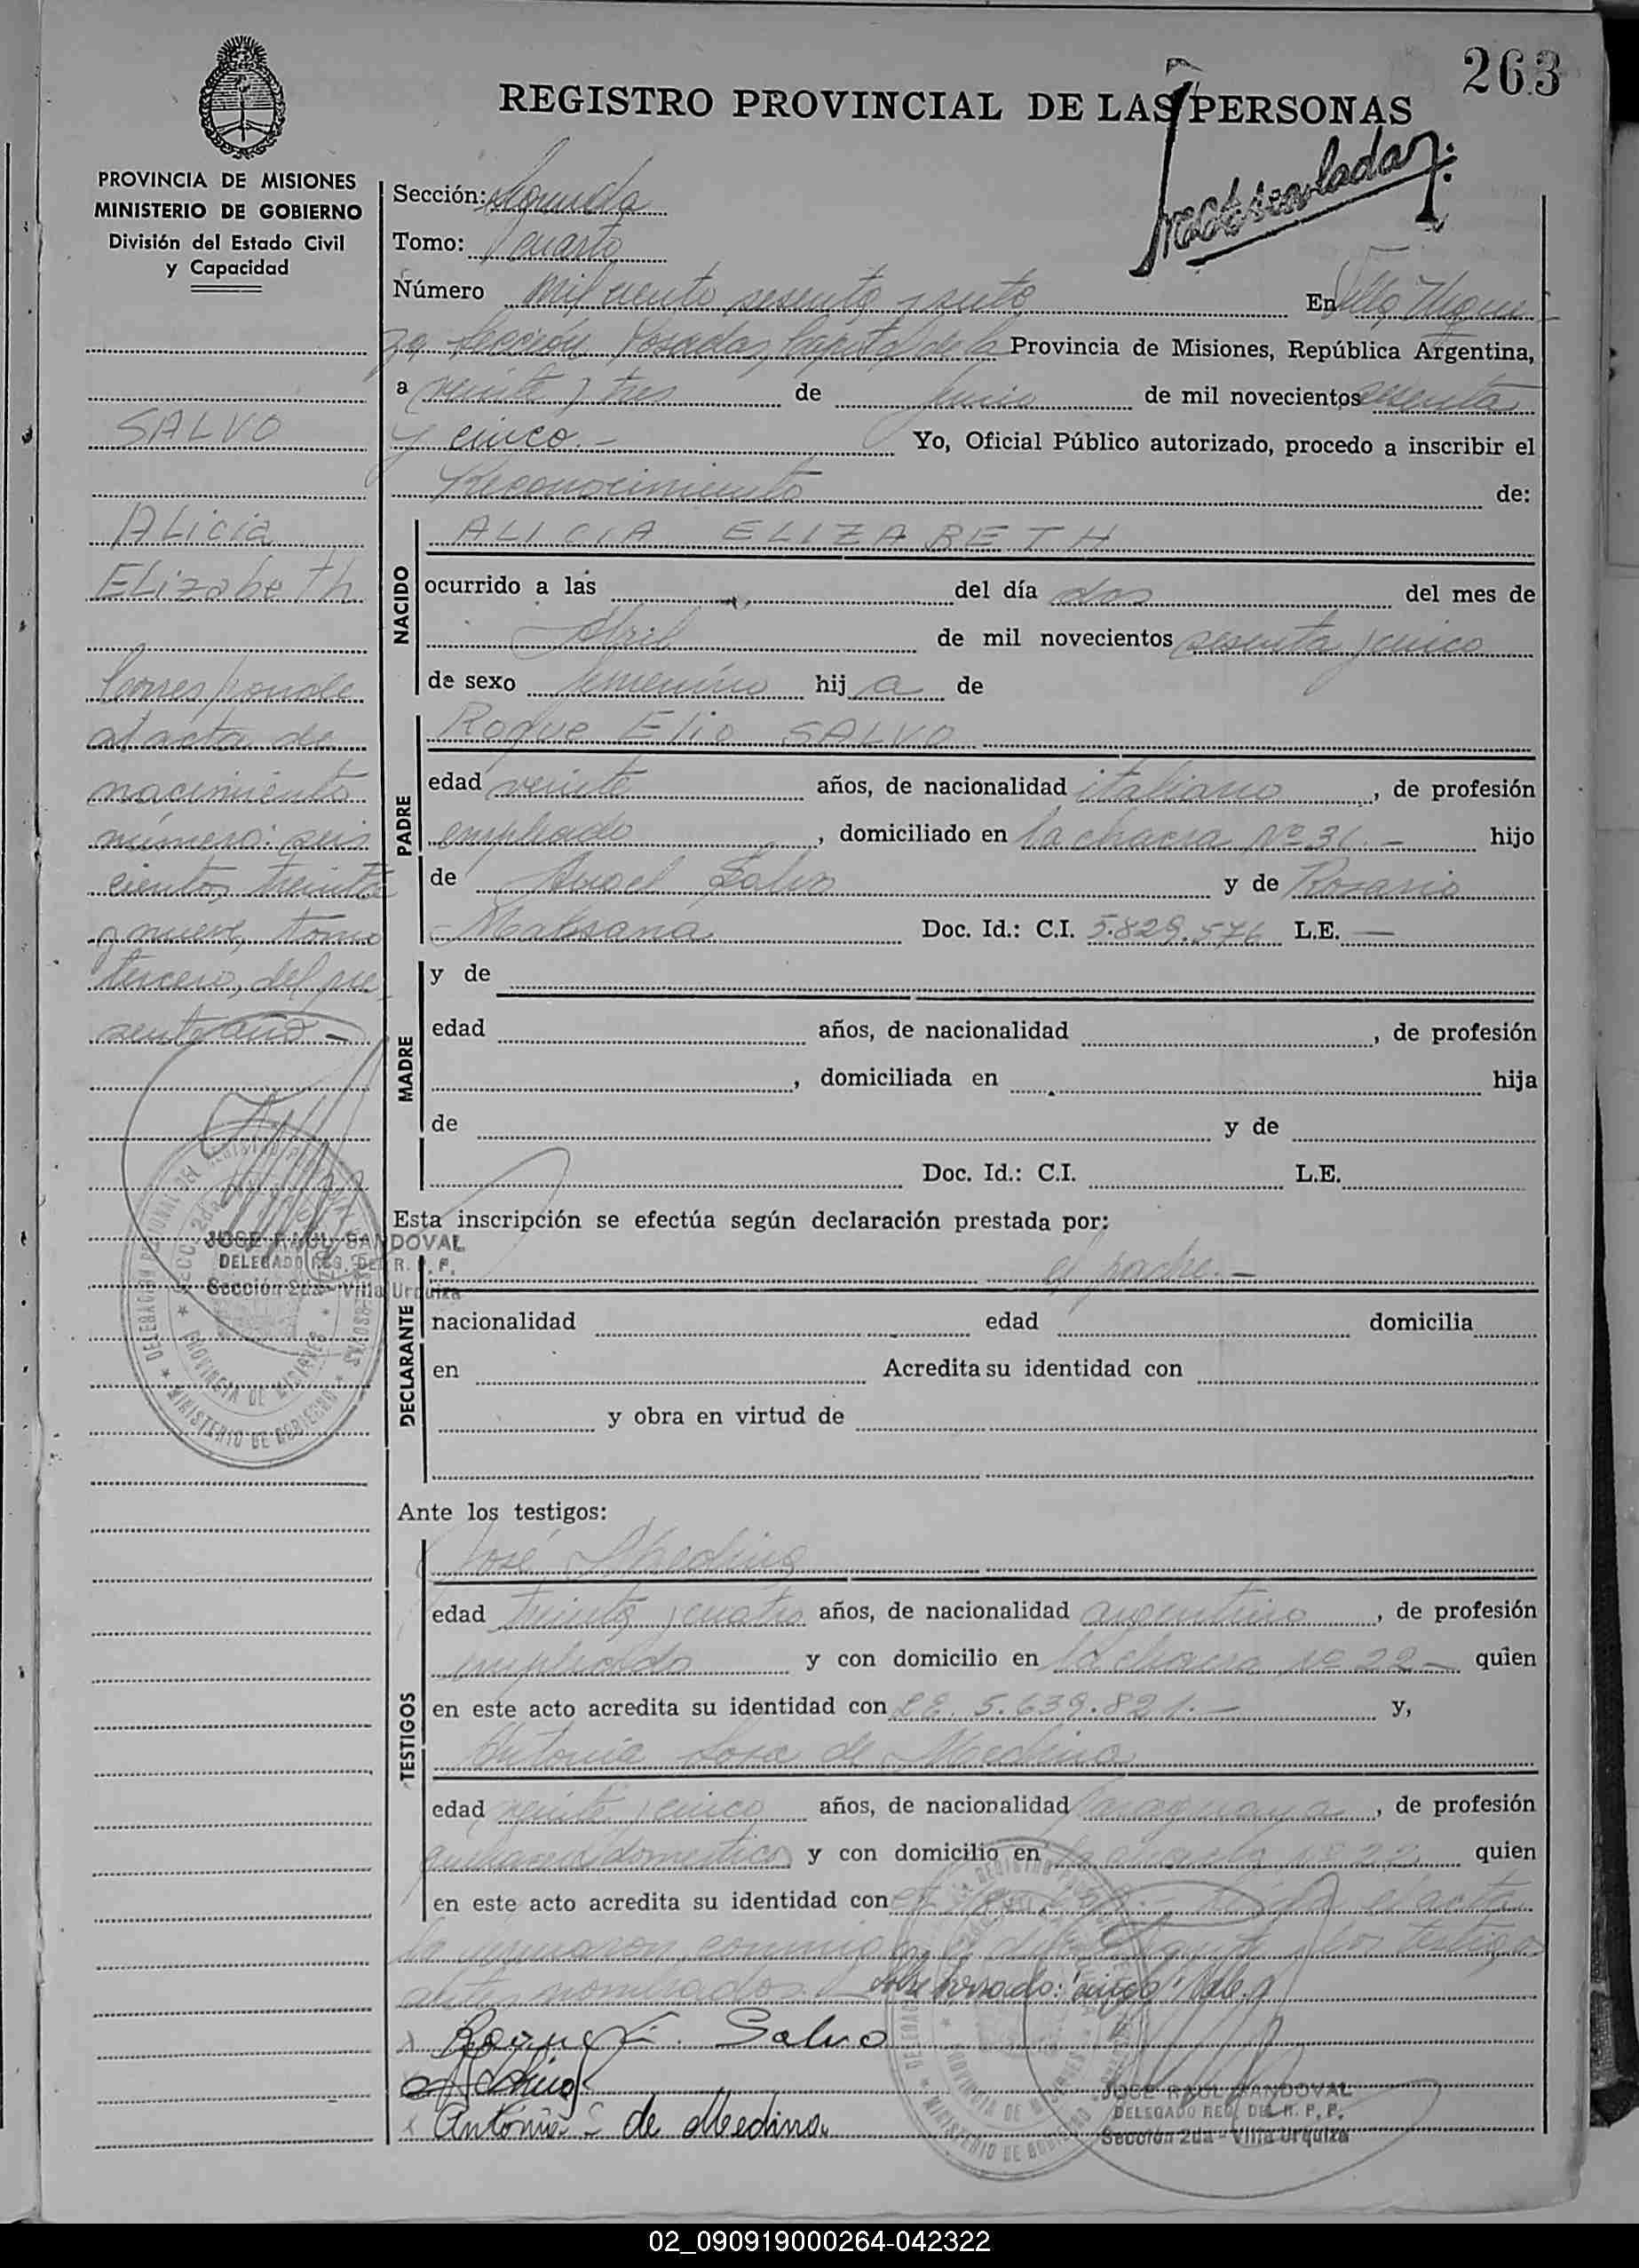 263
REGISTRO PROVINCIAL DE LAS PERSONAS
PROVINCIA DE MISIONES
MINISTERIO DE GOBIERNO
División del Estado Civil
y Capacidad
SALVO
Alicia
Elizabeth
Corresponde
al acta de
nacimiento
número: seis
cientos treinta
y nueve, tomo
tercero, del pre
sente año -
JOSE RAUL SANDOVAL
DELEGADO REG. DEL R. P. P.
Sección 2da - Villa Urquiza
Sección: Segunda
Tomo: cuarto
Número mil ciento sesenta y siete En Villa Urqui-
za Sección Posadas, Capital de la Provincia de Misiones, República Argentina,
a veinte y tres de junio de mil novecientos sesenta
y cinco.- Yo, Oficial Público autorizado, procedo a inscribir el
Reconocimiento de:
NACIDO
ALICIA ELIZABETH
ocurrido a las del día dos del mes de
Abril de mil novecientos sesenta y cinco
de sexo femenino hija de
PADRE
Roque Elio SALVO
edad veinte años, de nacionalidad italiano, de profesión
empleado, domiciliado en la chacra Nº 31.- hijo
de Salvo y de Rosario
Doc. Id.: C.I. 5.829.576 L.E. —
MADRE
y de
edad años, de nacionalidad , de profesión
, domiciliada en hija
de y de
Doc. Id.: C.I. L.E.
Esta inscripción se efectúa según declaración prestada por:
DECLARANTE
el padre.-
nacionalidad edad domicilia
en Acredita su identidad con
y obra en virtud de
Ante los testigos:
TESTIGOS
José Medina
edad treinta y cuatro años, de nacionalidad argentino, de profesión
empleado y con domicilio en la chacra Nº 22 - quien
en este acto acredita su identidad con L.E. 5.639.821.- y,
Antonia Sosa de Medina
edad veinte y cinco años, de nacionalidad paraguaya, de profesión
quehacer domestico y con domicilio en la chacra Nº 22 quien
en este acto acredita su identidad con el acta
la firmaron conmigo el y los testigos
ante nombrados. Sobre borrado: "cinco" Vale.
Roque E. Salvo
Antonia S. de Medina
JOSE RAUL SANDOVAL
DELEGADO REG. DEL R. P. P.
Sección 2da - Villa Urquiza
02_090919000264-042322